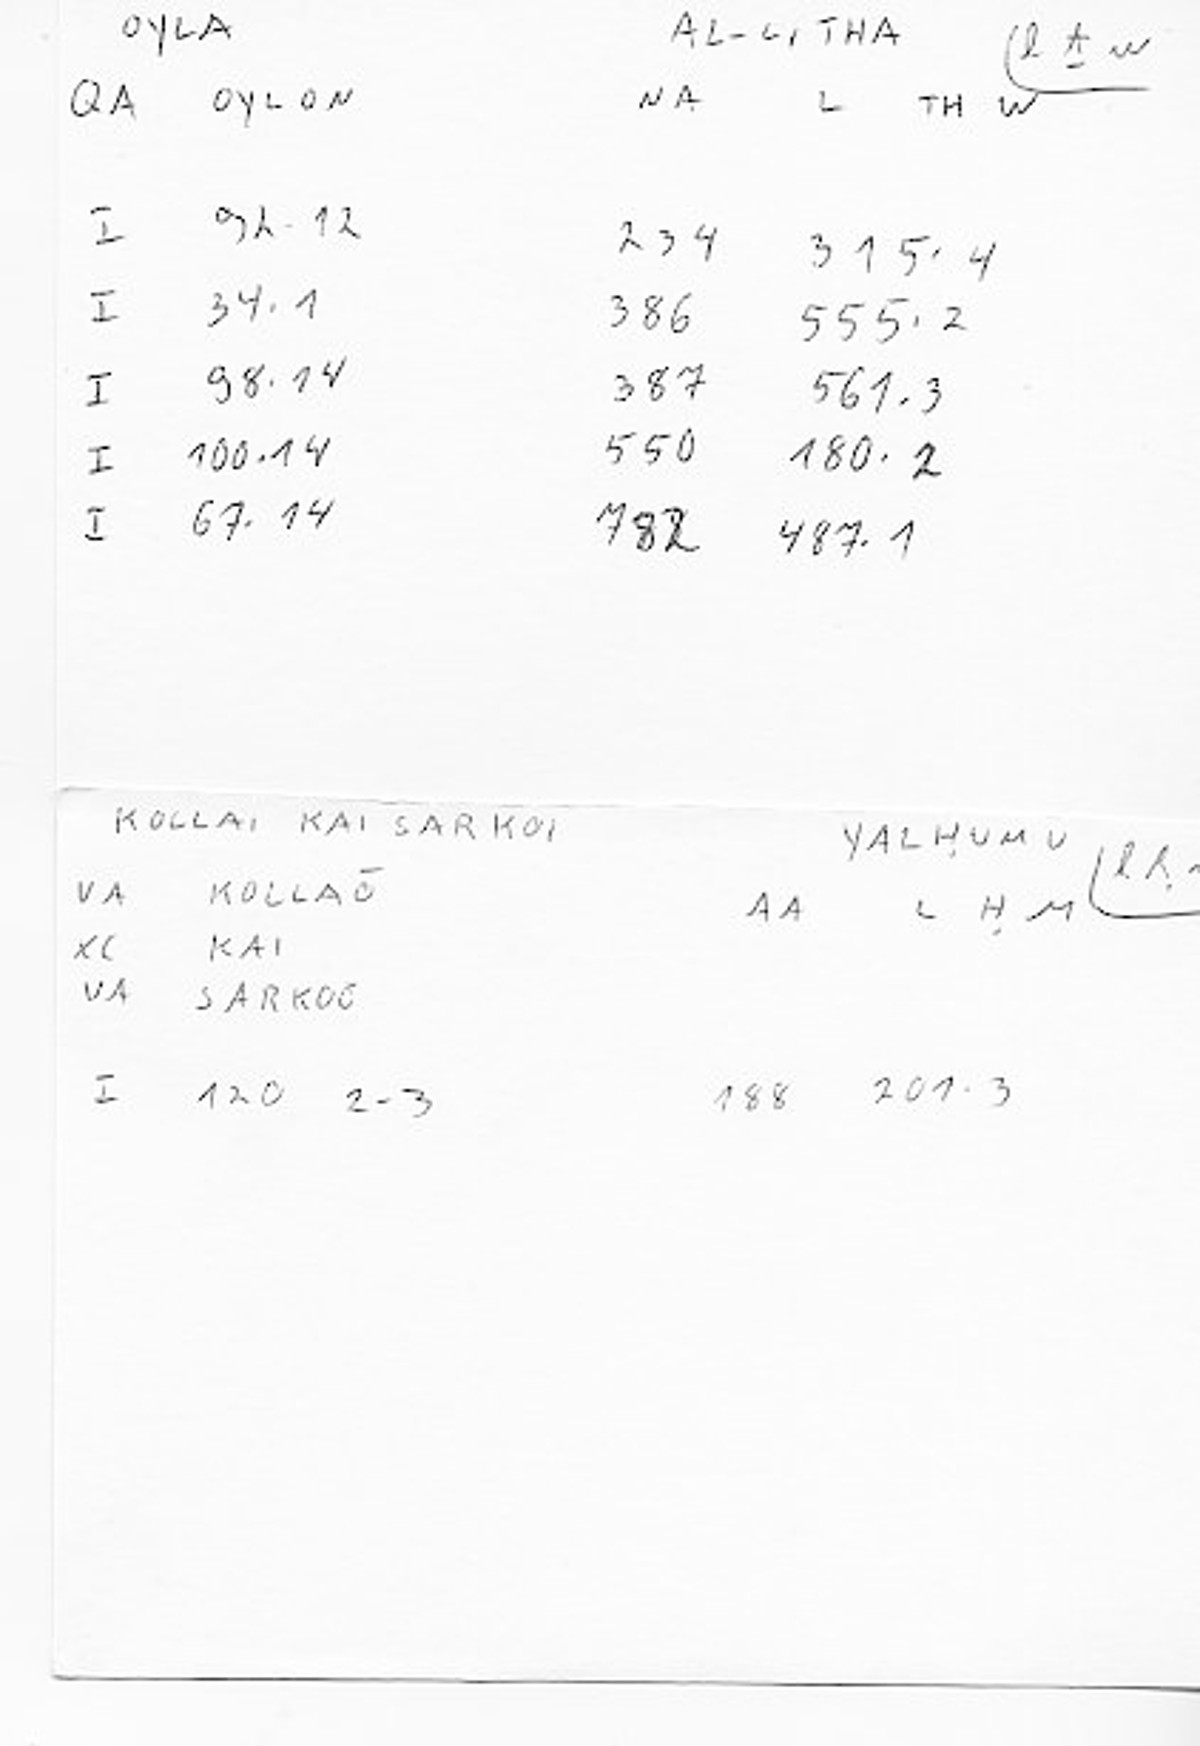 OYLA AL-LITHA (l ṯ w
QA OYLON NA L TH W
I 92.12 234 315.4
I 34.1 386 555.2
I 98.14 387 561.3
I 100.14 550 180.2
I 67.14 782 487.1
KOLLAI KAI SARKOI YALḤUMU (l ḥ
VA KOLLAŌ AA L Ḥ M
XC KAI
VA SARKOO
I 120 2-3 188 201.3